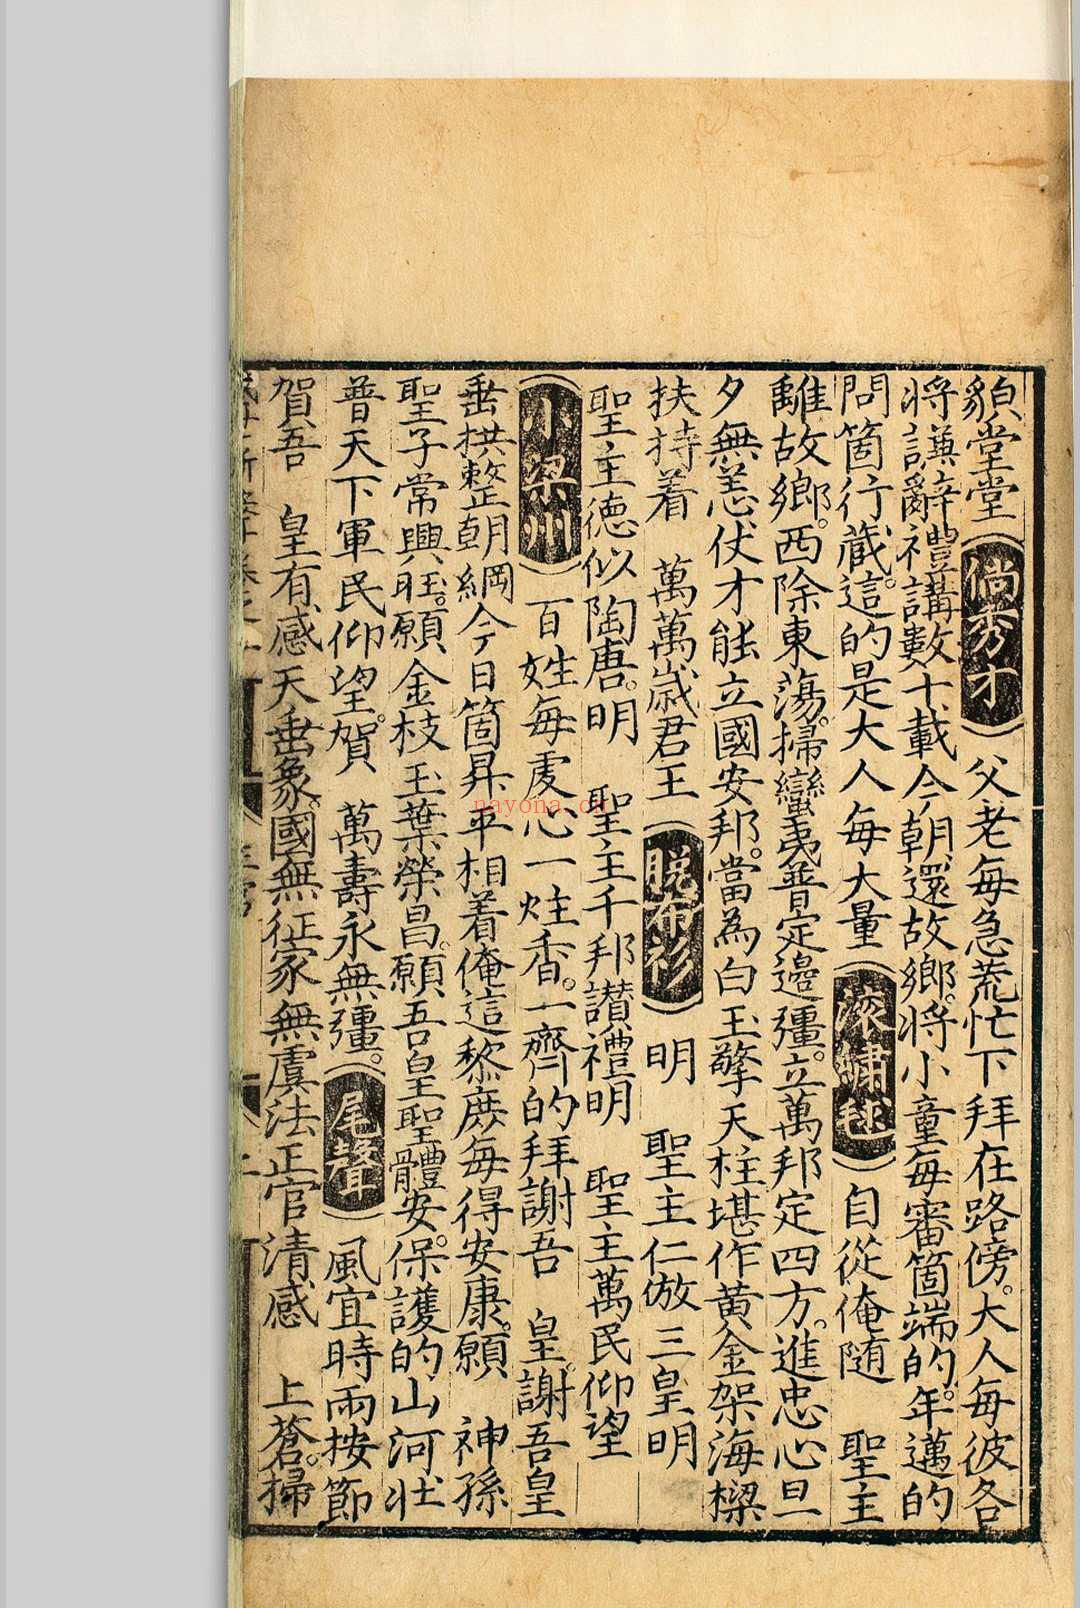 貌堂堂 倘秀才 父老每急荒忙下拜在路傍。大人每彼各
將謙辭禮講數十載今朝還故鄉。將小童每審箇端的。年邁的
問箇行藏。這的是大人每大量 滾繡毬 自從俺隨 聖主
離故鄉。西除東蕩。掃蠻夷普定邊疆。立萬邦定四方。進忠心旦
夕無恙伏才能立國安邦。當為白玉擎天柱堪作黃金架海樑
扶持着 萬萬歲君王 脫布衫 明 聖主仁傚三皇明
聖主德似陶唐。明 聖主千邦讃禮明 聖主萬民仰望
小梁州 百姓每處心一炷香。一齊的拜謝吾 皇。謝吾皇
垂拱整朝綱今日箇昇平相着俺這黎庶每得安康。願 神孫
聖子常興旺。願金枝玉葉榮昌。願吾皇聖體安。保護的山河壯
普天下軍民仰望。賀 萬壽永無彊。 尾聲 風宜時雨按節
賀吾 皇有感天垂象。國無征家無虞法正官清感 上蒼。掃
nayona.cn